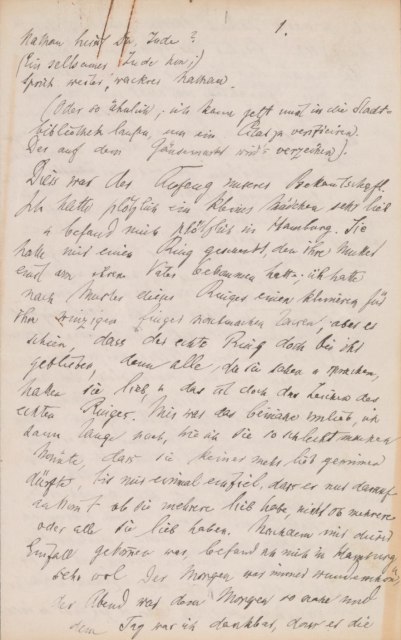 1.
Nathan heisst Du, Jude?
(Ein seltsamer Jude hm;)
Sprich weiter, wackrer Nathan.
(Oder so ähnlich; ich kann jetzt nicht in die Stadt-
bibliothek laufen, um ein Citat zu verificieren.
Der auf dem Gänsemarkt wird's verzeihen).
Dies war der Anfang unserer Bekanntschaft.
Ich hatte plötzlich ein kleines Mädchen sehr lieb
u befand mich plötzlich in Hamburg. Sie
hatte mir einen Ring geschenkt, den ihre Mutter
einst von ihrem Vater bekommen hatte; ich hatte
nach Muster dieses Ringes einen kleineren für
ihre winzigen Finger nachmachen lassen, aber es
schien, dass der echte Ring doch bei ihr
geblieben, denn alle, die sie sahen u sprachen,
hatten sie lieb, u das ist doch das Zeichen des
echten Ringes. Mir war das beinahe unlieb, ich
dann lange nach, wie ich sie so schlecht machen
könnte, dass sie keiner mehr lieb gewinnen
dürfte, bis mir einmal einfiel, dass es nur darauf
ankomt ob sie mehrere lieb habe, nicht ob mehrere
oder alle sie lieb haben. Nachdem mir dieser
Einfall gekomen war, befand ich mich in Hamburg
sehr wol. Der Morgen war immer wunderschön,
der Abend war dem Morgen so nahe und
dem Tag war ich dankbar, dass er die